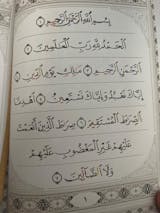 بِسْمِ اللَّهِ الرَّحْمَٰنِ الرَّحِيمِ ١
الْحَمْدُ لِلَّهِ رَبِّ الْعَالَمِينَ ٢
الرَّحْمَٰنِ الرَّحِيمِ ٣ مَالِكِ يَوْمِ الدِّينِ ٤
إِيَّاكَ نَعْبُدُ وَإِيَّاكَ نَسْتَعِينُ ٥ اهْدِنَا
الصِّرَاطَ الْمُسْتَقِيمَ ٦ صِرَاطَ الَّذِينَ أَنْعَمْتَ
عَلَيْهِمْ غَيْرِ الْمَغْضُوبِ عَلَيْهِمْ
وَلَا الضَّالِّينَ ٧
١